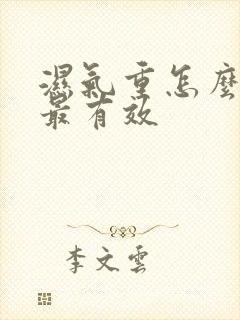 濕氣重怎麼
最有效
李文雲